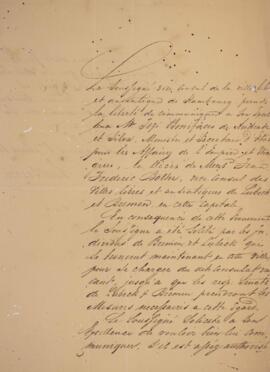 Le Soussigné vice consul de la ville libre
et anséatique de Hambourg prend
la liberté de communiquer à Son Excellence
Mr José Bonifacio de Andrada
et Silva, Ministre et Secrétaire d'Etat
pour les Affaires de l'Empire et Etrangères,
la mort de Monsr Jean
Frederic vice consul des
Villes libres et anséatiques de Lubeck
et Bremen en cette Capitale.
En consequence de cette
le soussigné a été
de Bremen et Lubeck que
se trouvent maintenant en cette Ville
pour se charger du dit Consulat
jusqu'à que les resp. Senats
de Lubeck & Bremen prendront les
Mesures necessaires a cette égard.
Le Soussigné Sollicite a Son
Excellence de vouloir bien lui
communiquer, s'il est